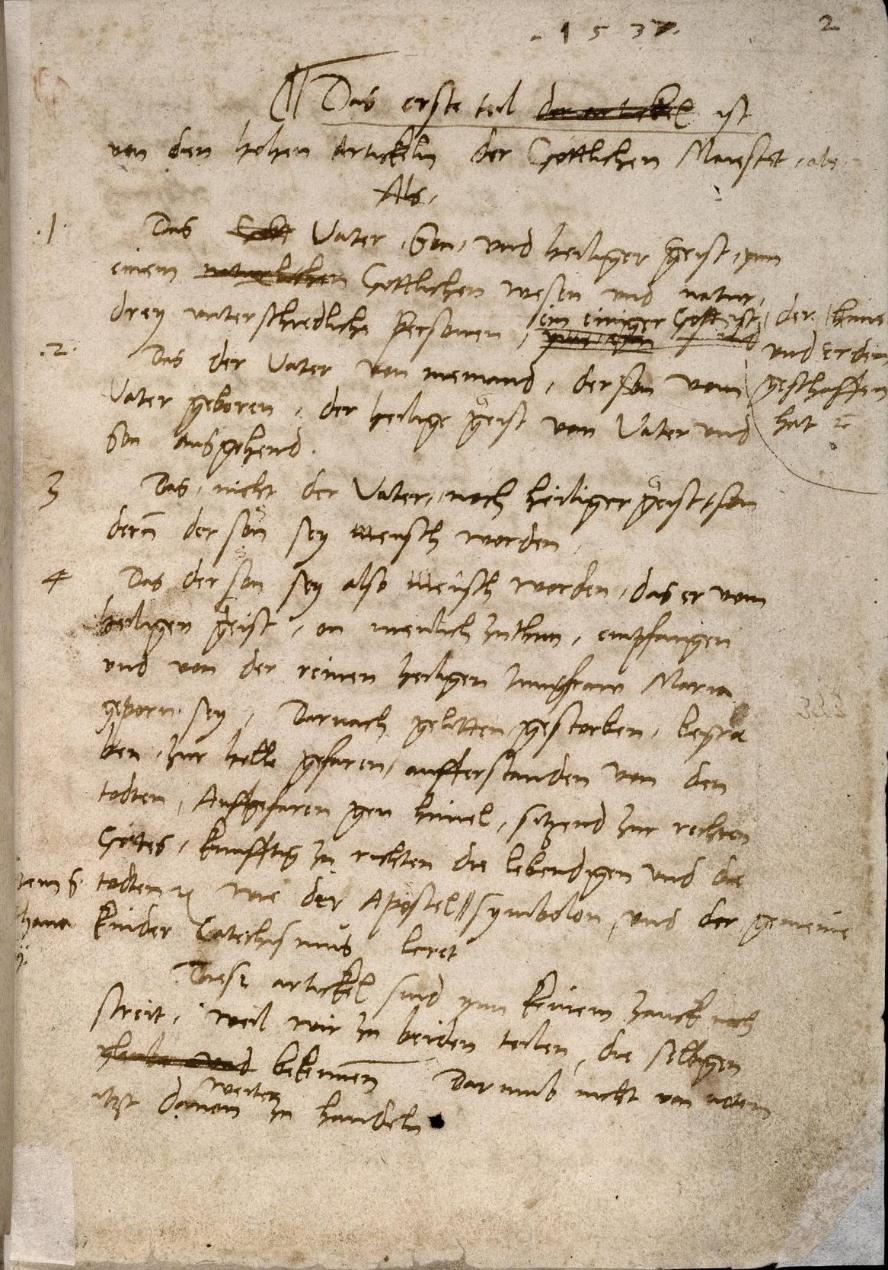 1537.
2
Das erste teil der artickel ist
von den hohen Artickeln der Gottlichen Maiestet, als
Als,
.1. Das Vater, Son, und heiliger geist, ynn
einem naturlichen Gottlichen wesen und natur,
drey unterschiedliche Personen, ein einiger Gott ist, der himel
und erden
geschaffen
hat rc
.2. Das der Vater von niemand, der son vom
Vater geboren, der heilige geist vom Vater und
Son ausgehend.
3 Das, nicht der Vater, noch heiliger geist, son
dern der son sey mensch worden,
4 Das der son sey also mensch worden, das er vom
heiligen geist, on menlich zuthun, empfangen
und von der reinen heiligen Jungfraw Maria
geporn sey, Darnach gelitten gestorben, begra
ben, zur helle gefaren, aufferstanden von den
todten, Auffgefaren gen himel, sitzend zur rechten
Gottes, kunfftig zu richten die lebendigen und die
todten rc wie der Apostel symbolon, und der gemeine
kinder Catechismus leret
Diese artickel sind ynn keinem zanck noch
streit, weil wir zu beiden teilen, die selbigen
gleuben und bekennen Darumb nicht von noten
itzt davon weiter zu handeln